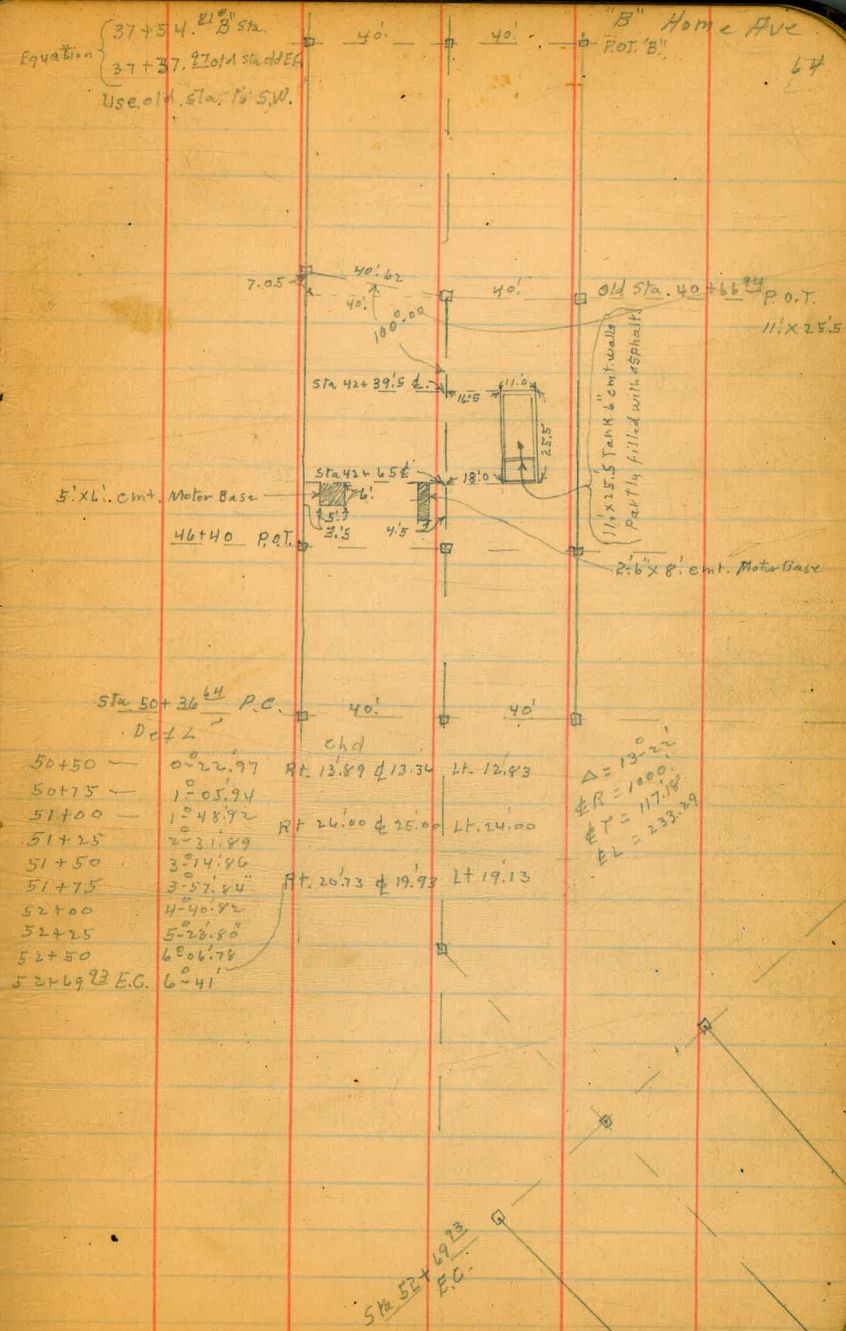 "B" Home Ave
64
Equation { 37+54.81 "B" Sta.
37+37.97 old sta. old E.C.
Use old sta. to S.W.
40' 40' P.O.T. "B"
7.05 40'.62 40' Old Sta. 40+66.94 P.O.T.
40'
100°.00
11'.X 25.5
Sta 42+39'.5 ℄
16.5 11.0
25.5
11'.x25'.5 Tank 6" cmt. walls
Partly filled with asphalt
Sta 42+65 ℄
18.0
5'.X6'. cmt. Motor Base
6'
5'
3'.5 4'.5
46+40 P.O.T.
2'.6"X8'. cmt. Motor Base
Sta 50+36.64 P.C. 40' 40'
Def L
chd
50+50 — 0°-22'.97 Rt. 13.89 ℄ 13.36 Lt. 12.83
50+75 — 1°-05'.94
51+00 — 1°-48'.92
51+25 2°-31'.89 Rt 26.00 ℄ 25.00 Lt. 24.00
51+50 3°-14'.86
51+75 3°-57'.84 Rt. 20.73 ℄ 19.93 Lt 19.13
52+00 4°-40'.82
52+25 5°-23'.80
52+50 6°-06'.78
52+69.93 E.C. 6°-41'
Δ = 13°-22'
℄ R = 1000'.
℄ T = 117.18'
℄ L = 233.29
Sta 52+69.93
E.C.